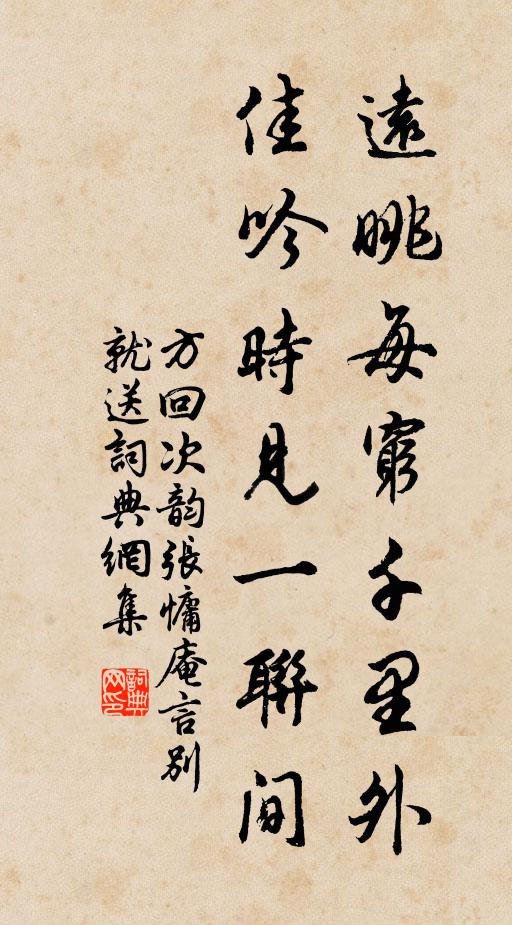 遠眺每窮千里外
佳吟時見一聯间
方回次韵張慵庵言别
就送詞典網集
詞典网印